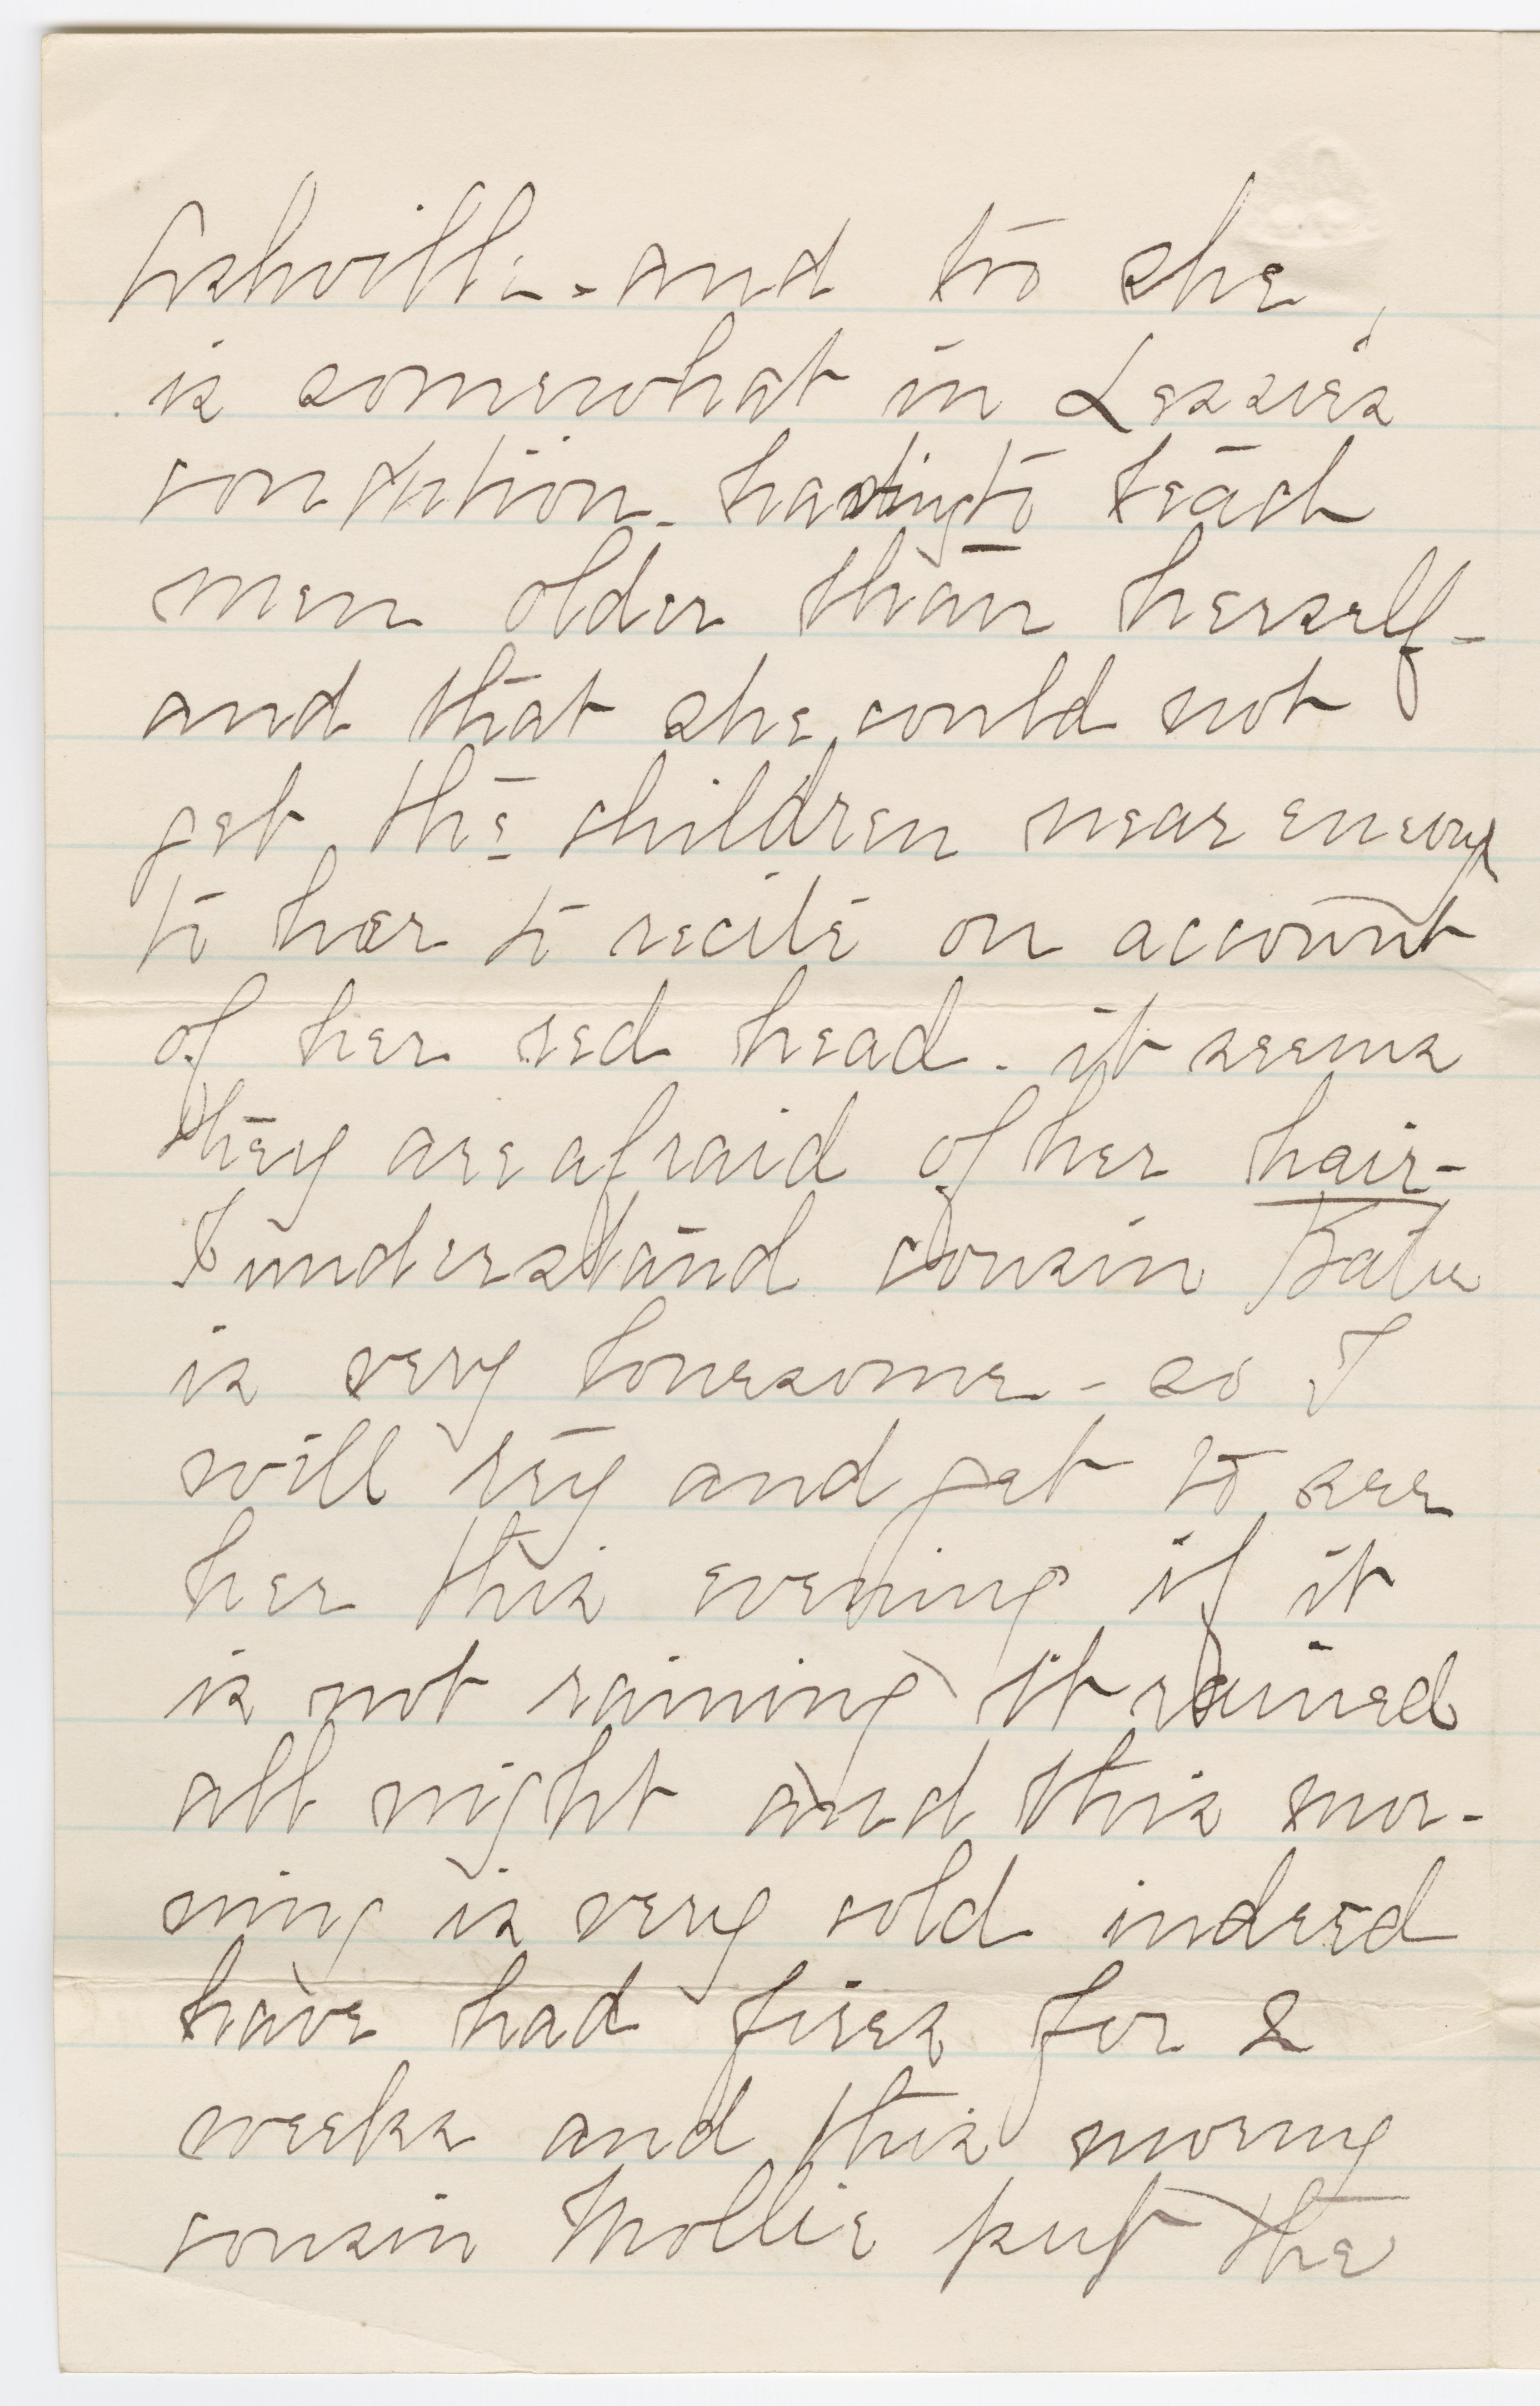 Ashville - and to she
is somewhat in Lessies
condition - having to teach
men older than herself -
and that she could not
get the children near enough
to her to recite on account
of her red head - it seems
they are afraid of her hair -
I understand cousin Katie
is very lonesome - so I
will try and get to see
her this evening if it
is not raining it rained
all night and this mor-
ning is very cold indeed
have had fires for 2
weeks and this morning
cousin Mollie put the